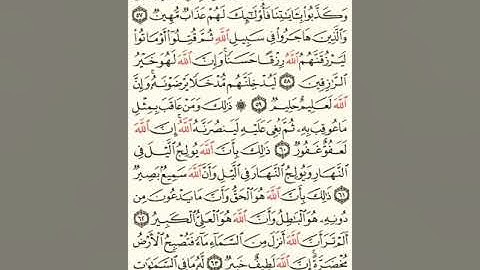 وَكَذَّبُوا۟ بِـَٔايَـٰتِنَا فَأُو۟لَـٰٓئِكَ لَهُمْ عَذَابٌ مُّهِينٌ ٥٧
وَٱلَّذِينَ هَاجَرُوا۟ فِى سَبِيلِ ٱللَّهِ ثُمَّ قُتِلُوٓا۟ أَوْ مَاتُوا۟
لَيَرْزُقَنَّهُمُ ٱللَّهُ رِزْقًا حَسَنًا وَإِنَّ ٱللَّهَ لَهُوَ خَيْرُ
ٱلرَّٰزِقِينَ ٥٨ لَيُدْخِلَنَّهُم مُّدْخَلًا يَرْضَوْنَهُۥ وَإِنَّ
ٱللَّهَ لَعَلِيمٌ حَلِيمٌ ٥٩ ۞ ذَٰلِكَ وَمَنْ عَاقَبَ بِمِثْلِ
مَا عُوقِبَ بِهِۦ ثُمَّ بُغِىَ عَلَيْهِ لَيَنصُرَنَّهُ ٱللَّهُ إِنَّ ٱللَّهَ
لَعَفُوٌّ غَفُورٌ ٦٠ ذَٰلِكَ بِأَنَّ ٱللَّهَ يُولِجُ ٱلَّيْلَ فِى
ٱلنَّهَارِ وَيُولِجُ ٱلنَّهَارَ فِى ٱلَّيْلِ وَأَنَّ ٱللَّهَ سَمِيعٌۢ بَصِيرٌ
٦١ ذَٰلِكَ بِأَنَّ ٱللَّهَ هُوَ ٱلْحَقُّ وَأَنَّ مَا يَدْعُونَ مِن
دُونِهِۦ هُوَ ٱلْبَـٰطِلُ وَأَنَّ ٱللَّهَ هُوَ ٱلْعَلِىُّ ٱلْكَبِيرُ ٦٢
أَلَمْ تَرَ أَنَّ ٱللَّهَ أَنزَلَ مِنَ ٱلسَّمَآءِ مَآءً فَتُصْبِحُ ٱلْأَرْضُ
مُخْضَرَّةً إِنَّ ٱللَّهَ لَطِيفٌ خَبِيرٌ ٦٣ لَّهُۥ مَا فِى ٱلسَّمَـٰوَٰتِ